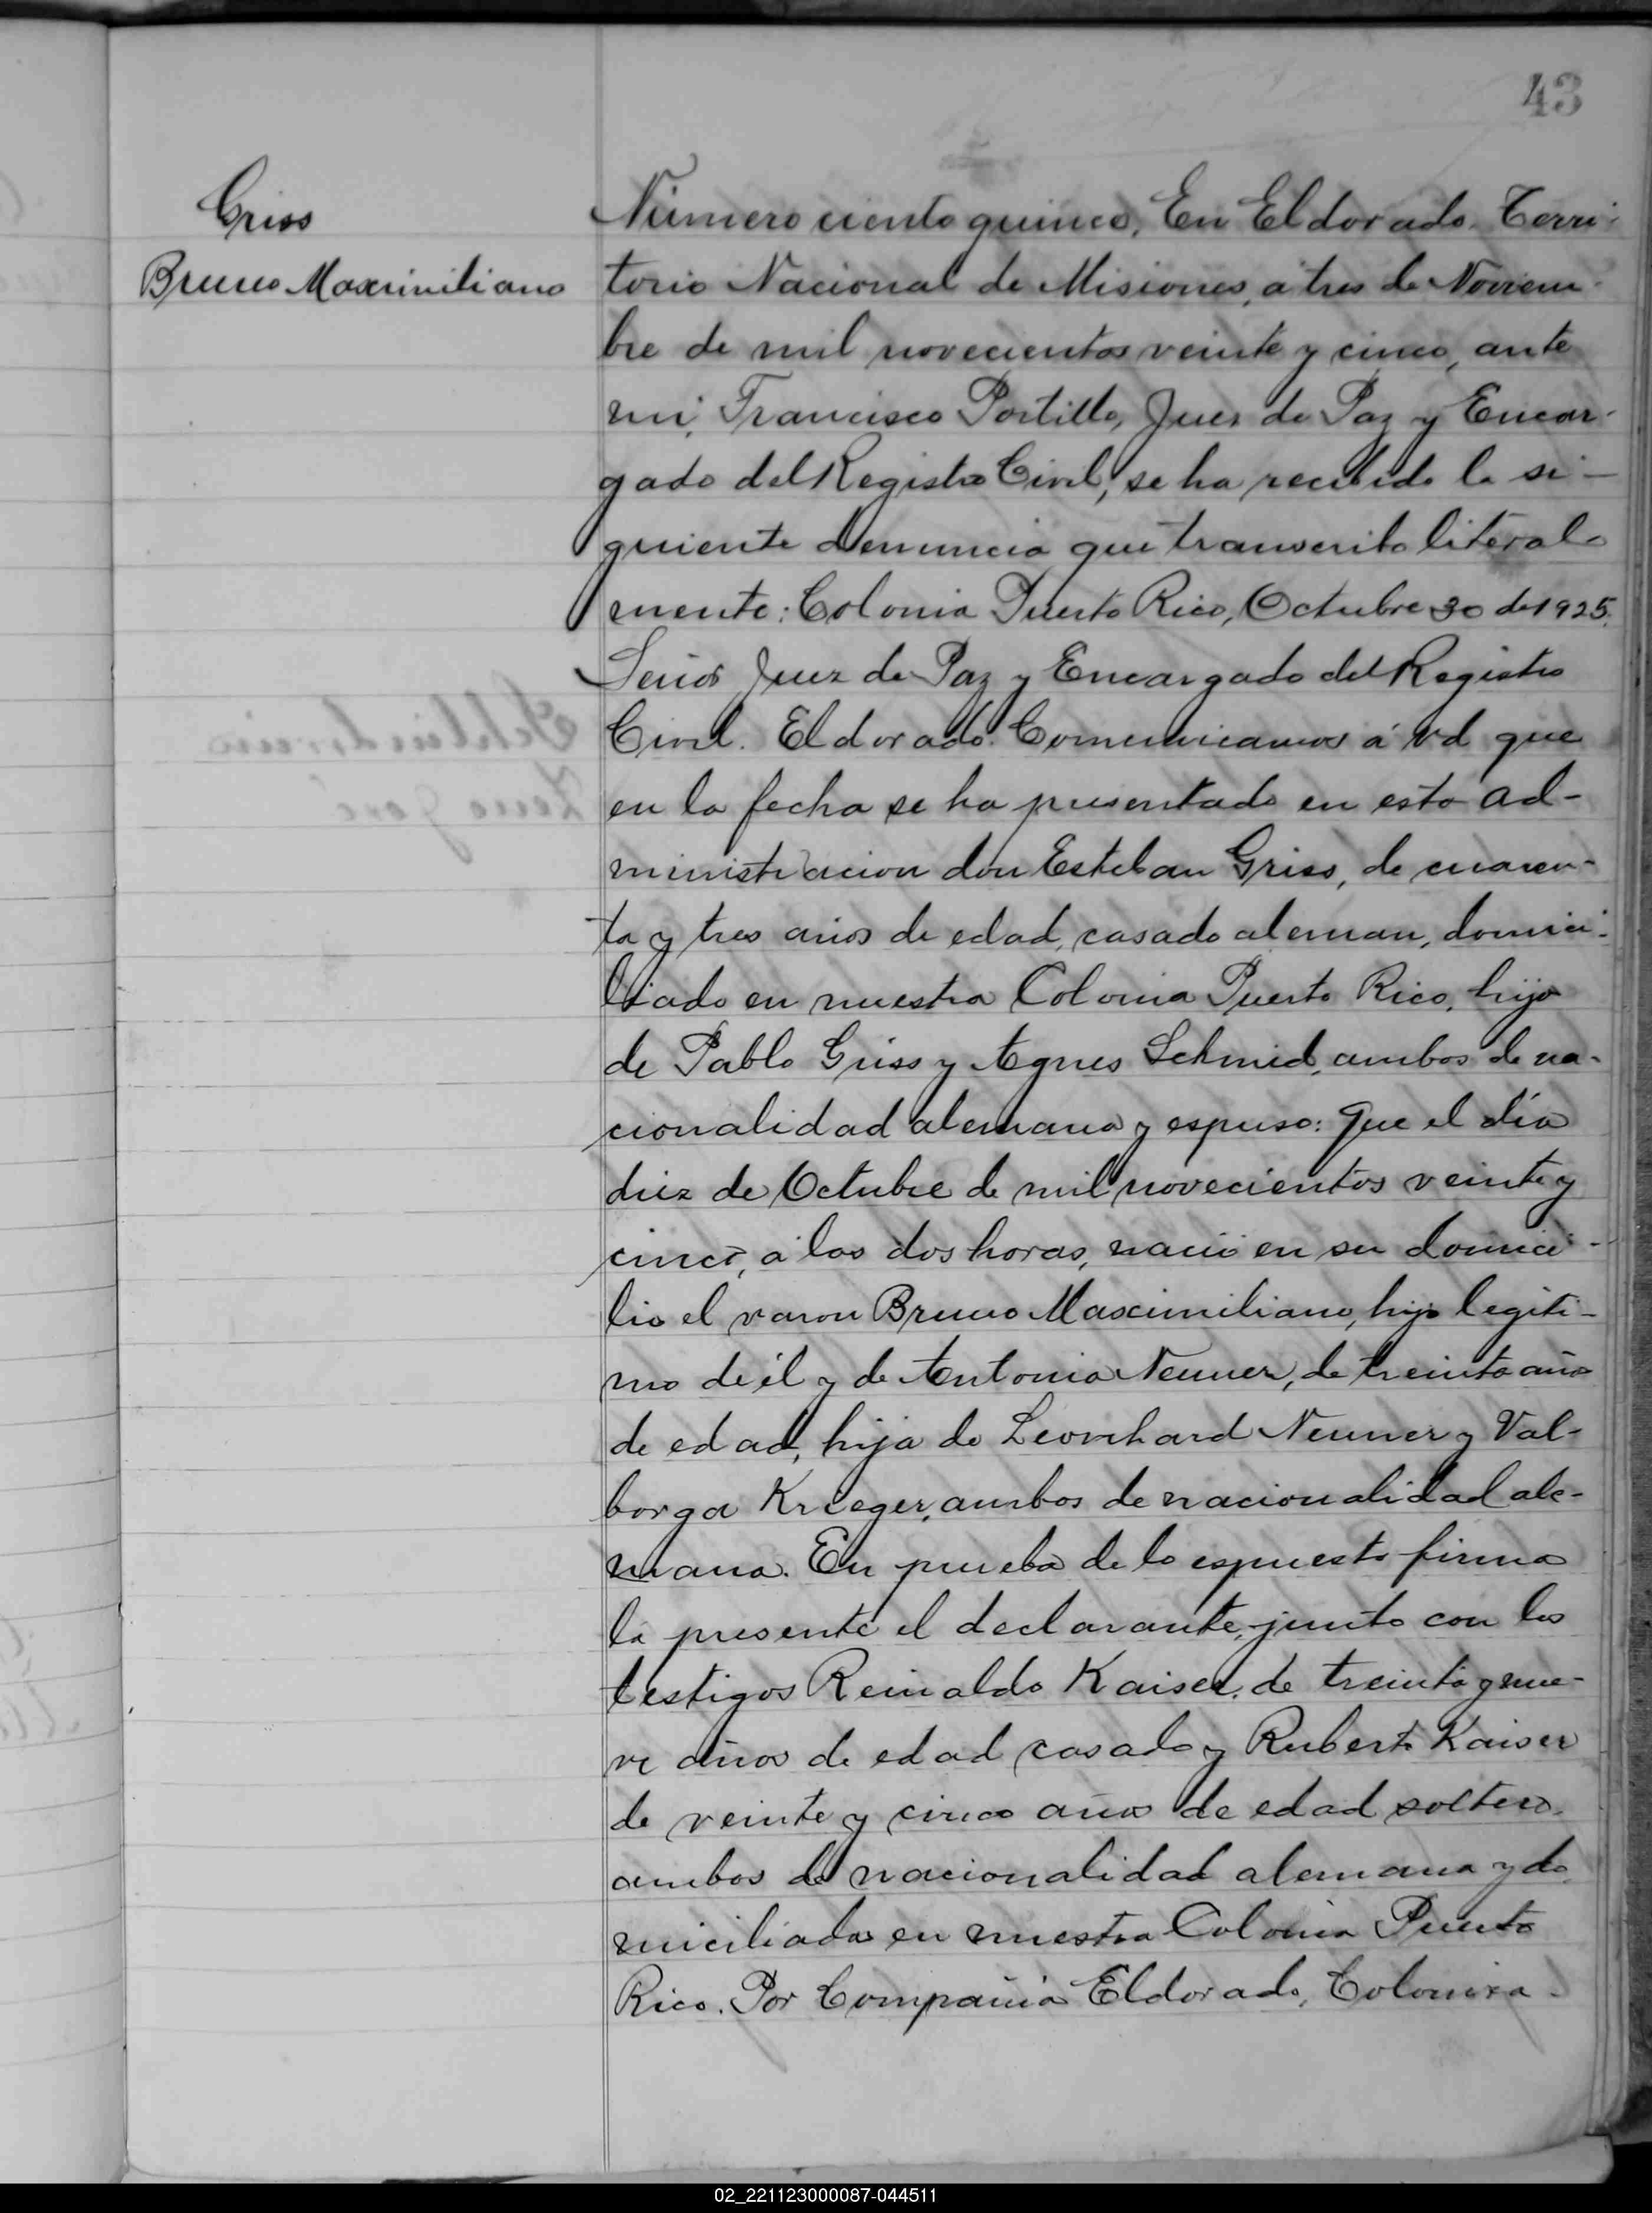 43
Griss
Bruno Maximiliano
Número ciento quince, En Eldorado, Terri-
torio Nacional de Misiones, a tres de Noviem-
bre de mil novecientos veinte y cinco, ante
mi, Francisco Portillo, Juez de Paz y Encar-
gado del Registro Civil, se ha recibido la si-
guiente denuncia que transcribo literal-
mente: Colonia Puerto Rico, Octubre 30 de 1925.
Señor Juez de Paz y Encargado del Registro
Civil. Eldorado. Comunicamos á Vd que
en la fecha se ha presentado en esta ad-
ministracion don Esteban Griss, de cuaren-
ta y tres años de edad, casado aleman, domici-
liado en nuestra Colonia Puerto Rico, hijo
de Pablo Griss y Agnes Schmid, ambos de na-
cionalidad alemana y espuso: Que el día
diez de Octubre de mil novecientos veinte y
cinco, a las dos horas, nació en su domici-
lio el varon Bruno Maximiliano, hijo legíti-
mo de él y de Antonia Neuner, de treinta años
de edad, hija de Leonhard Neuner y Val-
borga Krieger, ambos de nacionalidad ale-
mana. En prueba de lo espuesto firma
la presente el declarante, junto con los
testigos Reinaldo Kaiser, de treinta y nue-
ve años de edad casado y Ruberto Kaiser
de veinte y cinco años de edad soltero,
ambos de nacionalidad alemana y do-
miciliados en nuestra Colonia Puerto
Rico. Por Compañia Eldorado, Coloniza-
02_221123000087-044511